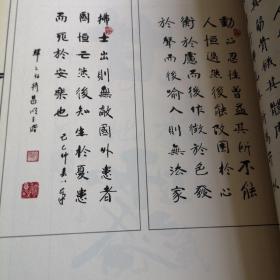 動心忍性曾益其所不能
人恒過然後能改困於心
衡於慮而後作徵於色發
於聲而後喻入則無法家
拂士出則無敵國外患者
國恒亡然後知生於憂患
而死於安樂也